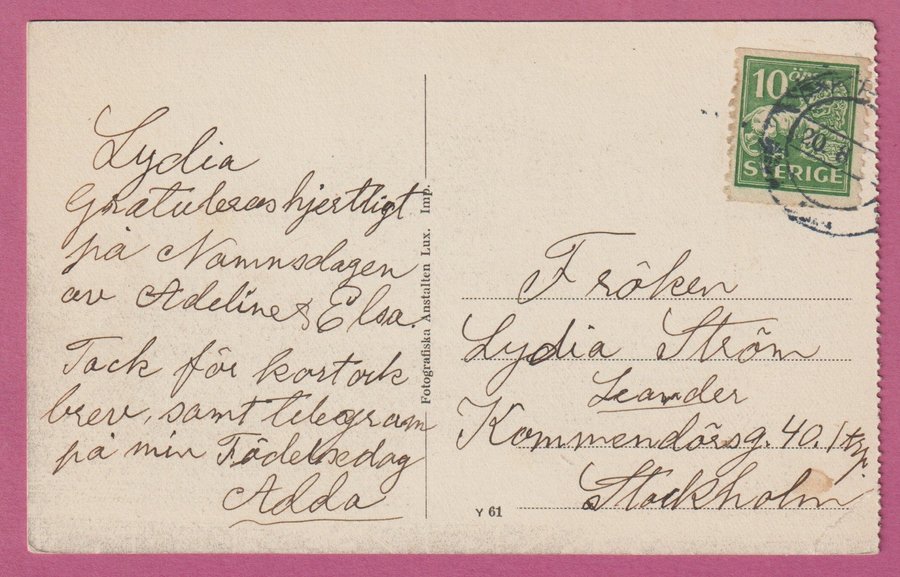 Lydia
Gratuleras hjertligt
på Namnsdagen
av Adeline & Elsa.
Tack för kort ock
brev, samt telegram
på min Födelsedag
Adda
Fotografiska Anstalten Lux. Imp.
10 ÖRE
SVERIGE
20 8
Fröken
Lydia Ström
Leander
Kommendörsg. 40. 1 trp.
Stockholm
Y 61